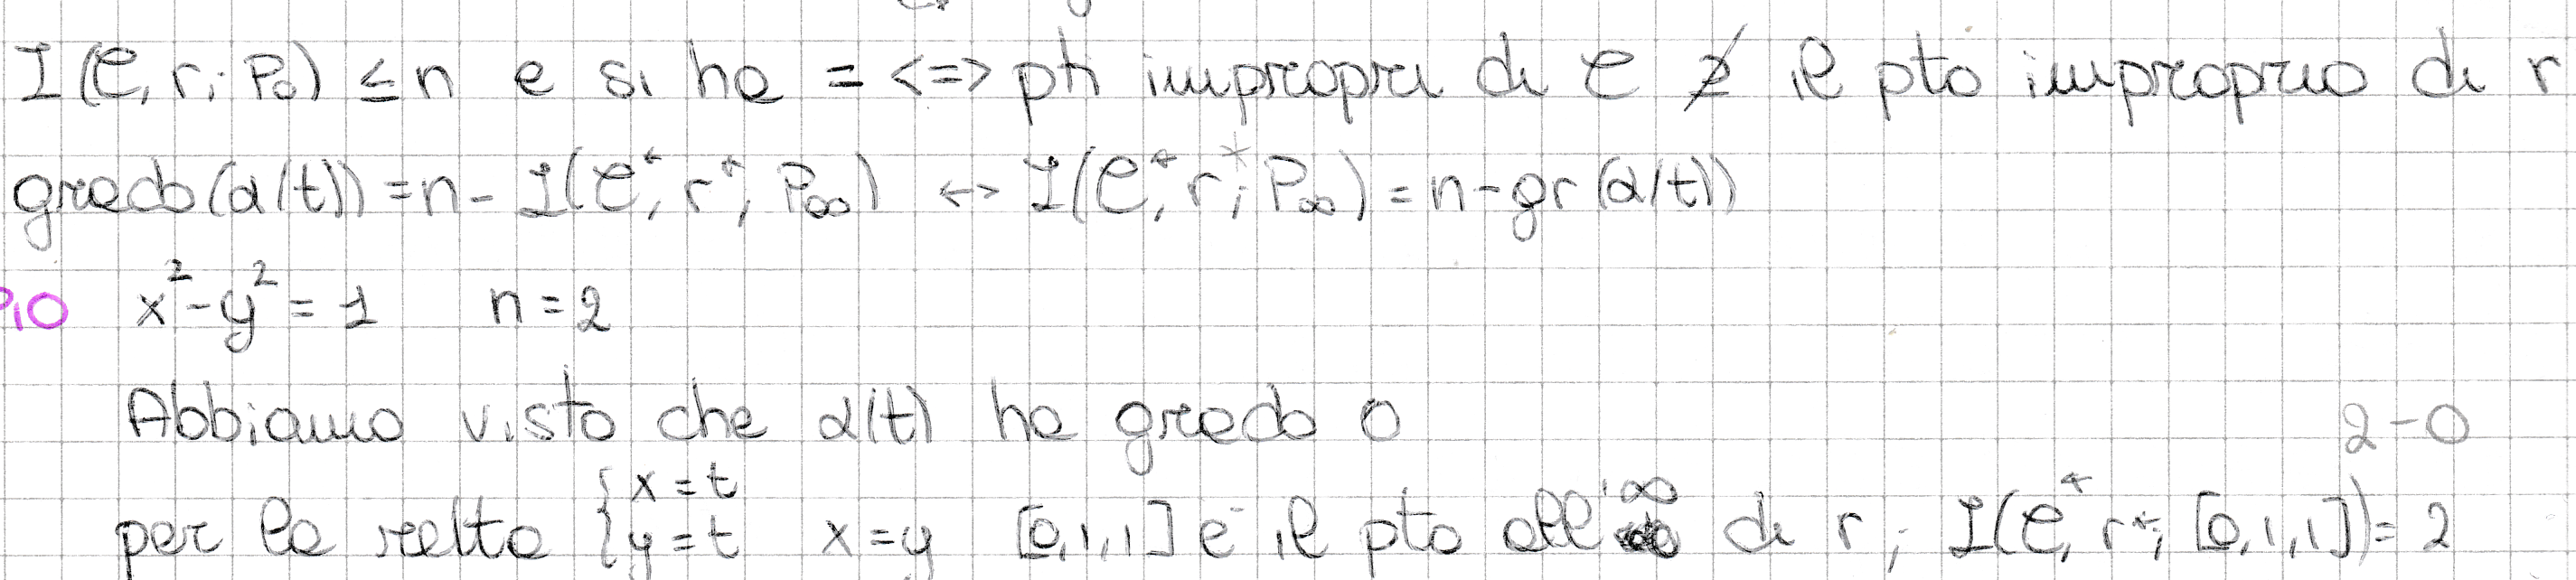 I(C, r; P₀) ≤ n e si ha = <=> pti impropri di C ∌ il pto improprio di r
grado(α(t)) = n - I(C*, r*; P∞) <-> I(C*, r*; P∞) = n - gr(α(t))
PIO x² - y² = 1 n = 2
Abbiamo visto che α(t) ha grado 0 2-0
per la retta { x = t y = t x = y [0,1,1] è il pto all'∞ di r; I(C*, r*; [0,1,1]) = 2